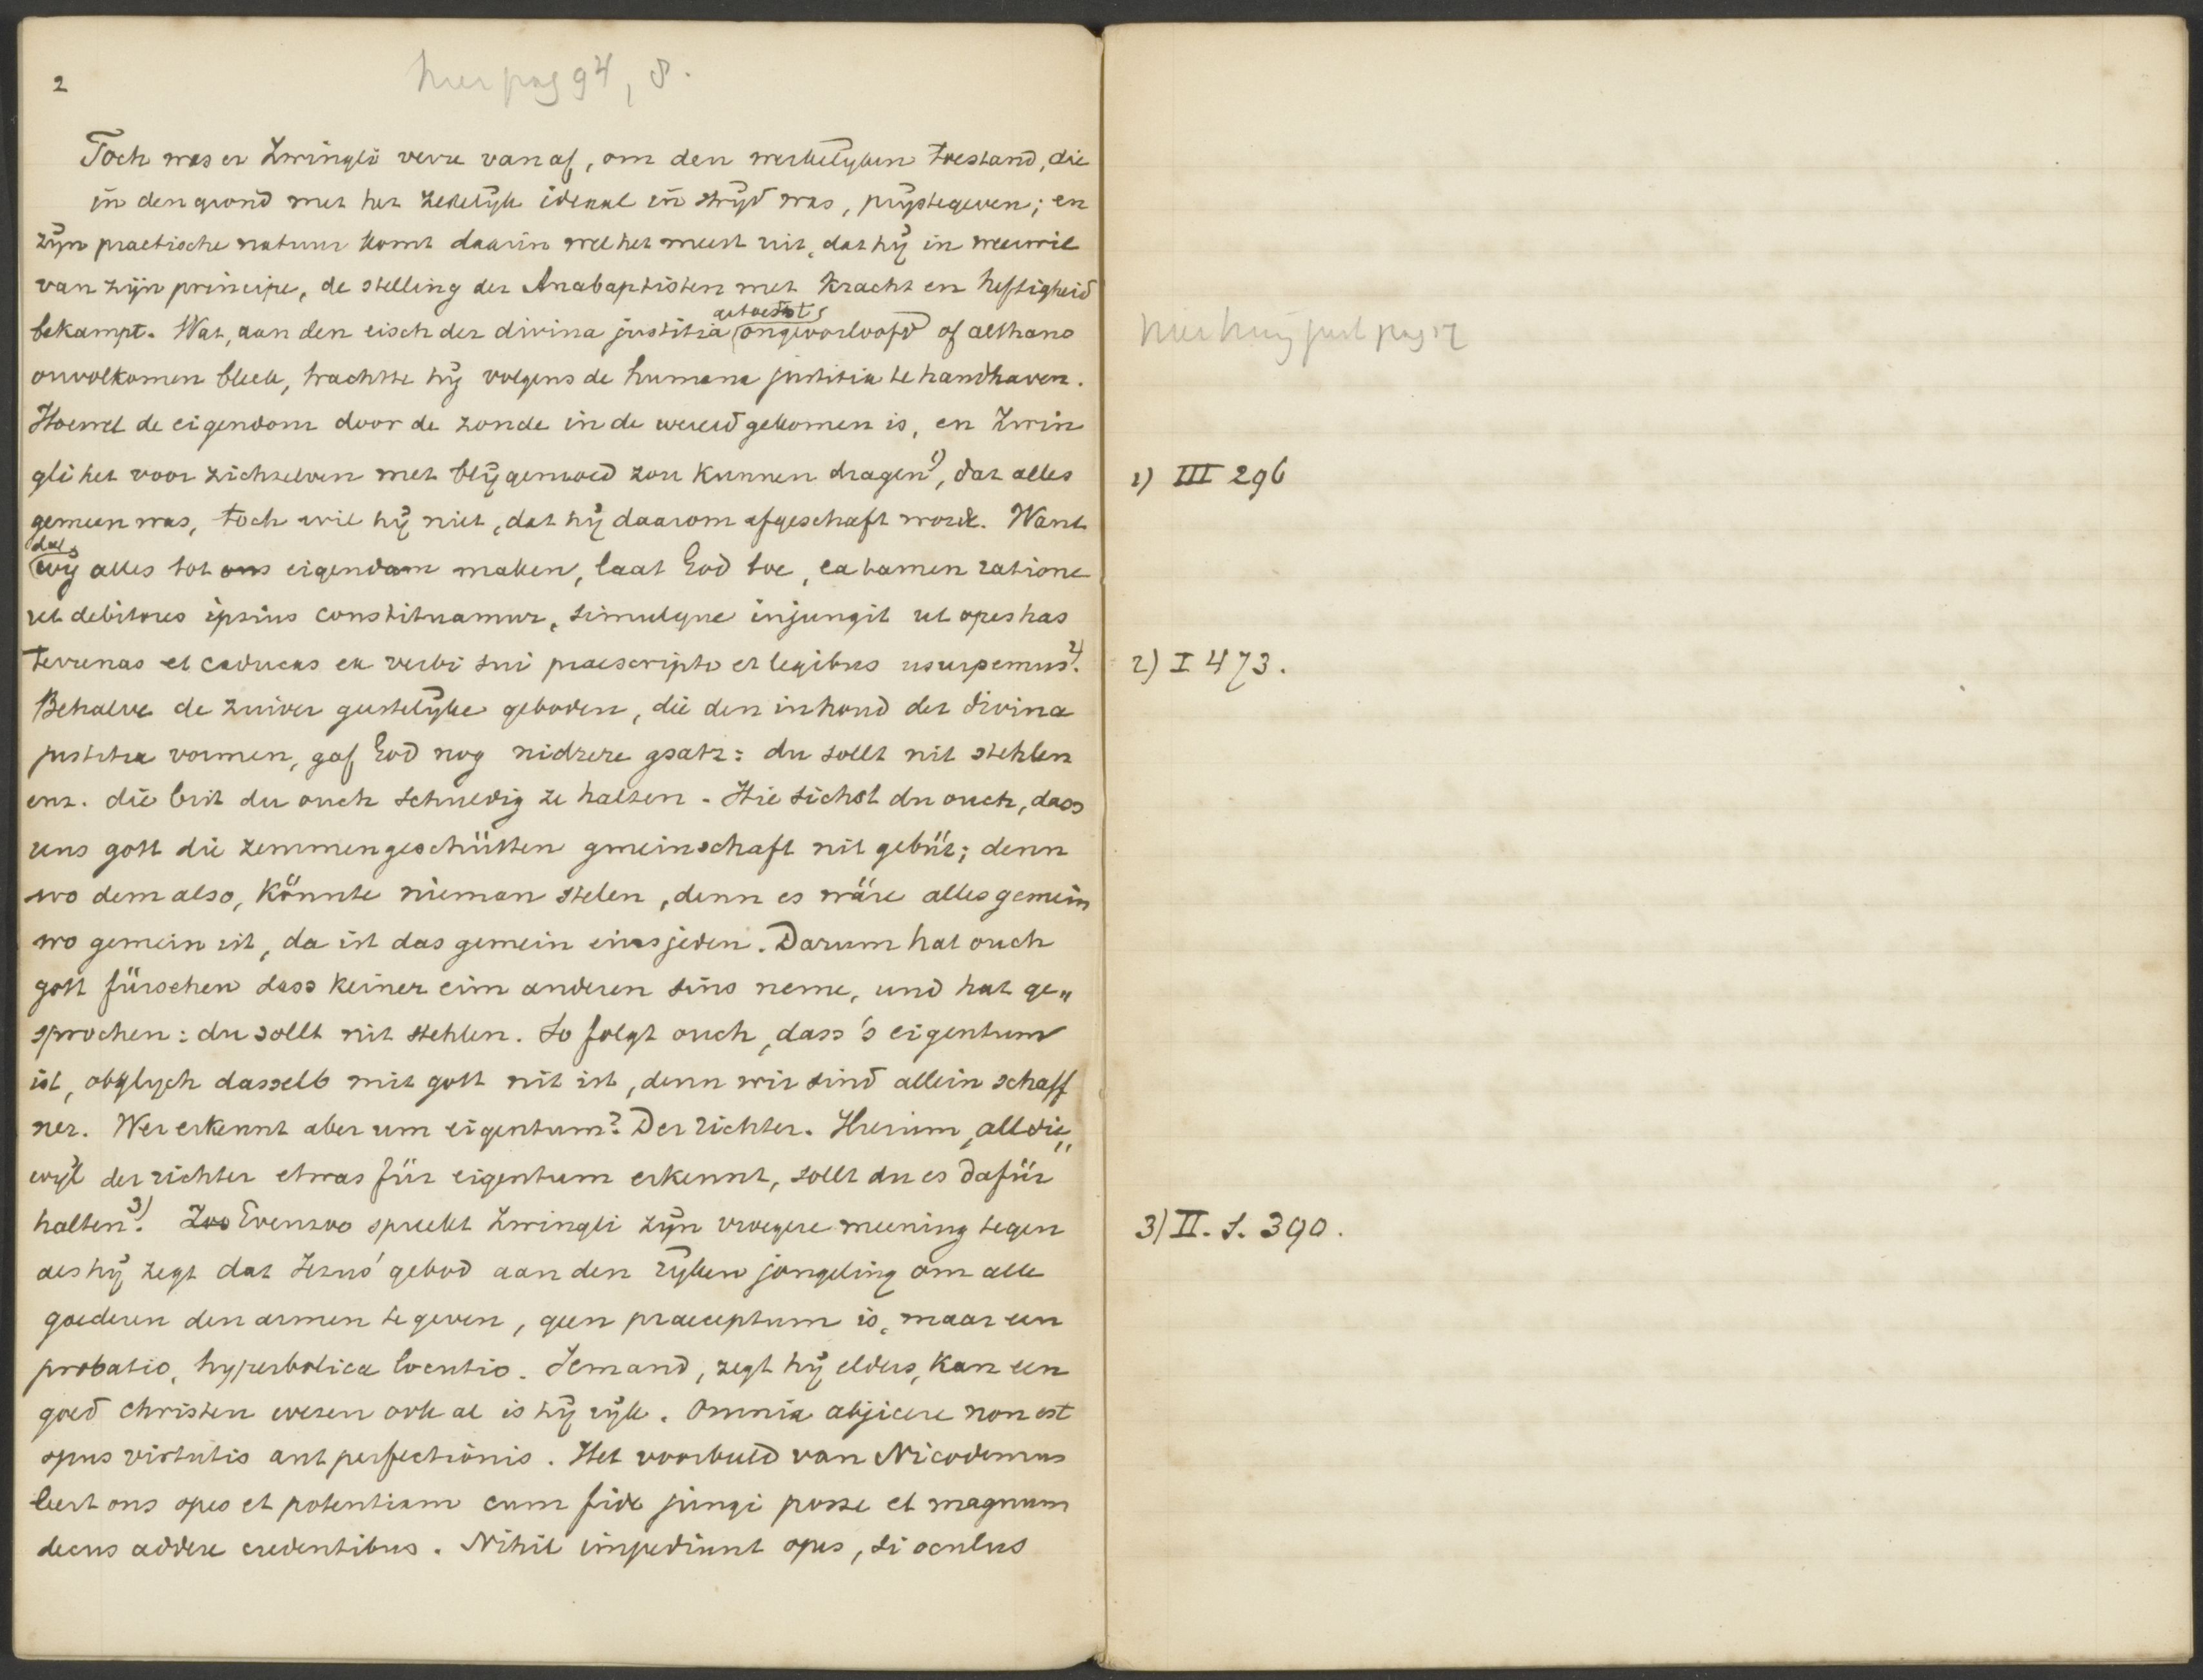 2
hier pag 94, 8.
Toch was er Zwingli verre van af, om den werkelijken toestand, die
in den grond met het zedelijk ideaal in strijd was, prijstegeven; en
zijn practische natuur komt daarin wel het meest uit, dat hij in weerwil
van zijn principe, de stelling der Anabaptisten met kracht en heftigheid
getoetst
bekampt. Wat, aan den eisch der divina justitia ongeoorloofd of althans
onvolkomen bleek, trachtte hij volgens de humana justitia te handhaven.
Hoewel de eigendom door de zonde in de wereld gekomen is, en Zwin
gli het voor zichzelven met blij gemoed zou kunnen dragen 1), dat alles
gemeen was, toch wil hij niet, dat hij daarom afgeschaft worde. Want
dat
wij alles tot ons eigendom maken, laat God toe, ea tamen ratione
ut debitores ipsius constituamur, simulque injungit ut opes has
terrenas et caducas ex verbi sui praescripto et legibus usurpemus 2).
Behalve de zuiver geestelijke geboden, die den inhoud der divina
justitia vormen, gaf God nog nidrere gsatz: du sollt nit stehlen
enz. die bist du ouch schuldig ze halten. Hie sichst du ouch, dass
uns gott die zemmengeschütten gmeinschaft nit gebüt; denn
wo dem also, könnte nieman stelen, denn es wäre alles gemein
wo gemein ist, da ist das gemein eins jeden. Darum hat ouch
gott fürsehen dass keiner eim anderen sins neme, und hat ge„
sprochen: du sollt nit stehlen. So folgt ouch, dass 's eigentum
ist, obglych dasselb mit gott nit ist, denn wir sind allein schaff
ner. Wer erkennt aber um eigentum? Der richter. Hierum, all die„
wyl der richter etwas für eigentum erkennt, sollt du es dafür
halten 3). Zoo Evenzoo spreekt Zwingli zijn vroegere meening tegen
als hij zegt dat Jezus' gebod aan den rijken jongeling om alle
goederen den armen te geven, geen praeceptum is, maar een
probatio, hyperbolica locutio. Iemand, zegt hij elders, kan een
goed christen wezen ook al is hij rijk. Omnia abjicere non est
opus virtutis aut perfectionis. Het voorbeeld van Nicodemus
leert ons opes et potentiam cum fide jungi posse et magnum
decus addere credentibus. Nihil impediunt opes, si oculus
1) III 296
2) I 473.
3) II. S. 390.